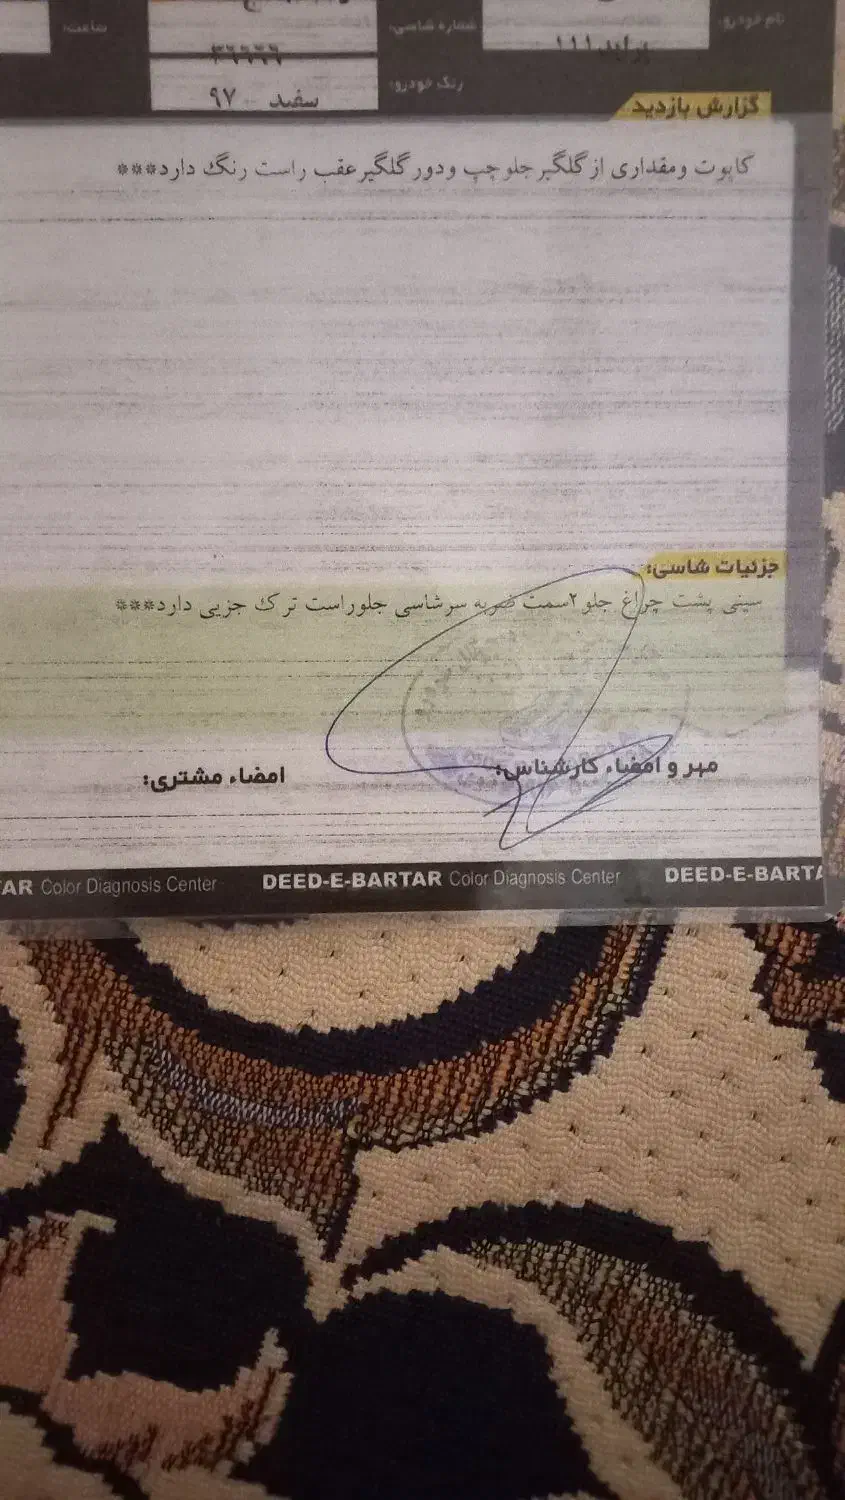 نام خودرو:
پراید ۱۱۱
شماره شاسی:
ساعت:
رنگ خودرو:
سفید - ۹۷
گزارش بازدید
کاپوت ومقداری ازگلگیرجلوچپ ودورگلگیرعقب راست رنگ دارد***
جزئیات شاسی:
سینی پشت چراغ جلو۲سمت ضربه سرشاسی جلوراست ترک جزیی دارد***
مهر و امضاء کارشناس:
امضاء مشتری:
TAR Color Diagnosis Center DEED-E-BARTAR Color Diagnosis Center DEED-E-BARTA